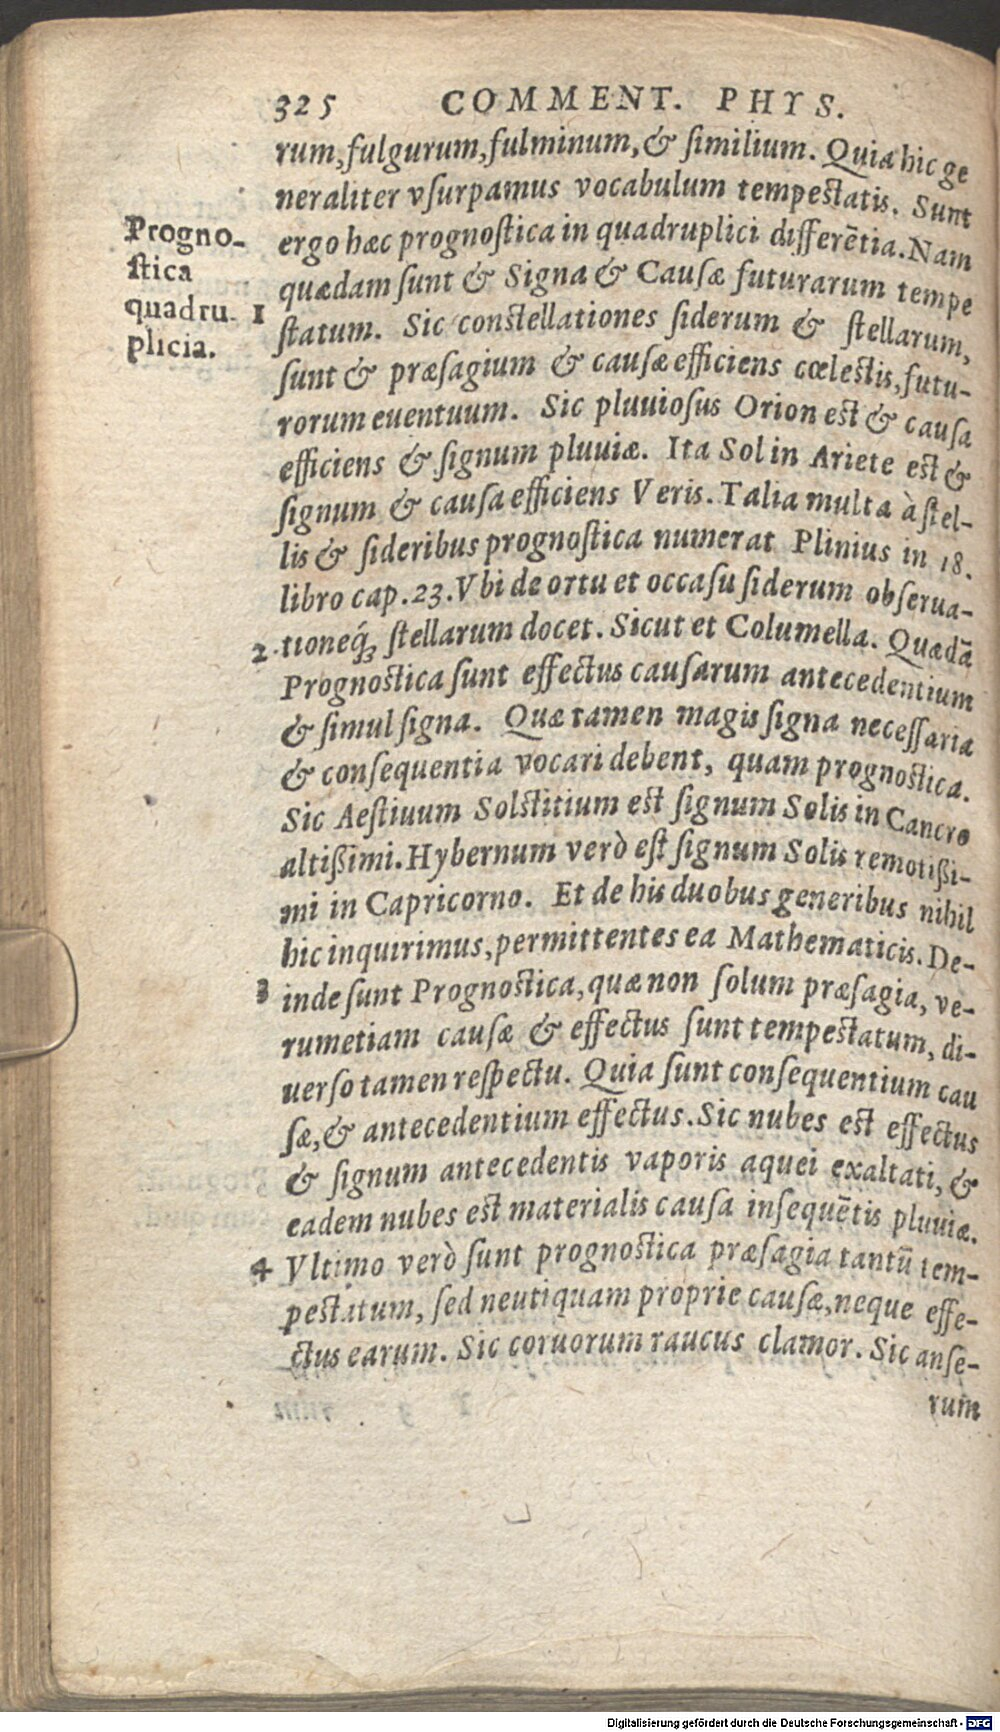 325 COMMENT. PHYS.
rum, fulgurum, fulminum, & ſimilium. Quia hic ge
neraliter vſurpamus vocabulum tempeſtatis. Sunt
ergo hæc prognoſtica in quadruplici differētia. Nam
quædam ſunt & Signa & Cauſæ futurarum tempe
ſtatum. Sic conſtellationes ſiderum & ſtellarum,
ſunt & præſagium & cauſæ efficiens cœleſtis, futu-
rorum euentuum. Sic pluuioſus Orion eſt & cauſa
efficiens & ſignum pluuiæ. Ita Sol in Ariete eſt &
ſignum & cauſa efficiens Veris. Talia multa à ſtel-
lis & ſideribus prognoſtica numerat Plinius in 18.
libro cap. 23. Vbi de ortu et occaſu ſiderum obſerua-
tioneq́; ſtellarum docet. Sicut et Columella. Quædā
Prognoſtica ſunt effectus cauſarum antecedentium
& ſimul ſigna. Quæ tamen magis ſigna neceſſaria
& conſequentia vocari debent, quam prognoſtica.
Sic Aeſtiuum Solſtitium eſt ſignum Solis in Cancro
altißimi. Hybernum verò eſt ſignum Solis remotißi-
mi in Capricorno. Et de his duobus generibus nihil
hic inquirimus, permittentes ea Mathematicis. De-
inde ſunt Prognoſtica, quæ non ſolum præſagia, ve-
rumetiam cauſæ & effectus ſunt tempeſtatum, di-
uerſo tamen reſpectu. Quia ſunt conſequentium cau
ſæ, & antecedentium effectus. Sic nubes eſt effectus
& ſignum antecedentis vaporis aquei exaltati, &
eadem nubes eſt materialis cauſa inſequētis pluuiæ.
Vltimo verò ſunt prognoſtica præſagia tantū tem-
peſtatum, ſed neutiquam proprie cauſæ, neque effe-
ctus earum. Sic coruorum raucus clamor. Sic anſe-
rum
Progno-
ſtica
quadru-
plicia.
1
2
3
4
Digitalisierung gefördert durch die Deutsche Forschungsgemeinschaft - DFG